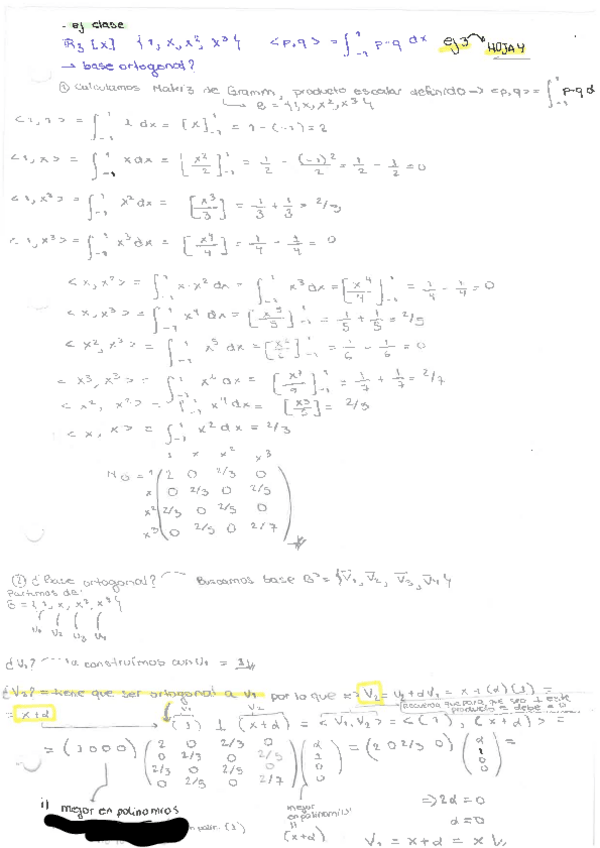 - ej clase
R₃[x] {1, x, x², x³} <p,q> = ∫₋₁¹ p·q dx ej 3 HOJA 4
→ base ortogonal?
① Calculamos Matriz de Gramm, producto escalar definido → <p,q> = ∫₋₁¹ p·q d
↳ B = {1, x, x², x³}
<1,1> = ∫₋₁¹ 1 dx = [x]₋₁¹ = 1-(-1) = 2
<1,x> = ∫₋₁¹ x dx = [x²/2]₋₁¹ = 1/2 - (-1)²/2 = 1/2 - 1/2 = 0
<1,x²> = ∫₋₁¹ x² dx = [x³/3] = 1/3 + 1/3 = 2/3
<1,x³> = ∫₋₁¹ x³ dx = [x⁴/4] = 1/4 - 1/4 = 0
<x,x²> = ∫₋₁¹ x·x² dx = ∫₋₁¹ x³ dx = [x⁴/4]₋₁¹ = 1/4 - 1/4 = 0
<x,x³> = ∫₋₁¹ x⁴ dx = [x⁵/5]₋₁¹ = 1/5 + 1/5 = 2/5
<x²,x³> = ∫₋₁¹ x⁵ dx = [x⁶/6]₋₁¹ = 1/6 - 1/6 = 0
<x³,x³> = ∫₋₁¹ x⁶ dx = [x⁷/7]₋₁¹ = 1/7 + 1/7 = 2/7
<x²,x²> = ∫₋₁¹ x⁴ dx = [x⁵/5] = 2/5
<x,x> = ∫₋₁¹ x² dx = 2/3
1 x x² x³
1 2 0 2/3 0
x 0 2/3 0 2/5
x² 2/3 0 2/5 0
x³ 0 2/5 0 2/7
② ¿Base ortogonal? Buscamos base B' = {v̄₁, v̄₂, v̄₃, v̄₄}
Partimos de:
B = {1, x, x², x³}
u₁ u₂ u₃ u₄
¿V₁? la construimos con u₁ = 1
¿V₂? = tiene que ser ortogonal a V₁ por lo que => V₂ = u₂ + αV₁ = x + (α)(1) =
= x+α
Recuerda que para que sea ⊥ este producto = debe = 0
V₁ V₂
(1) ⊥ (x+α) = <V₁,V₂> = <(1), (x+α)> =
= (1 0 0 0) (2 0 2/3 0) (α) = (2 0 2/3 0) (α) =
(0 2/3 0 2/5) (1) (1)
(2/3 0 2/5 0) (0) (0)
(0 2/5 0 2/7) (0) (0)
i) mejor en polinomios
polin. (1)
mejor en polinomios
(x+α)
=> 2α = 0
α = 0
V₂ = x+α = x